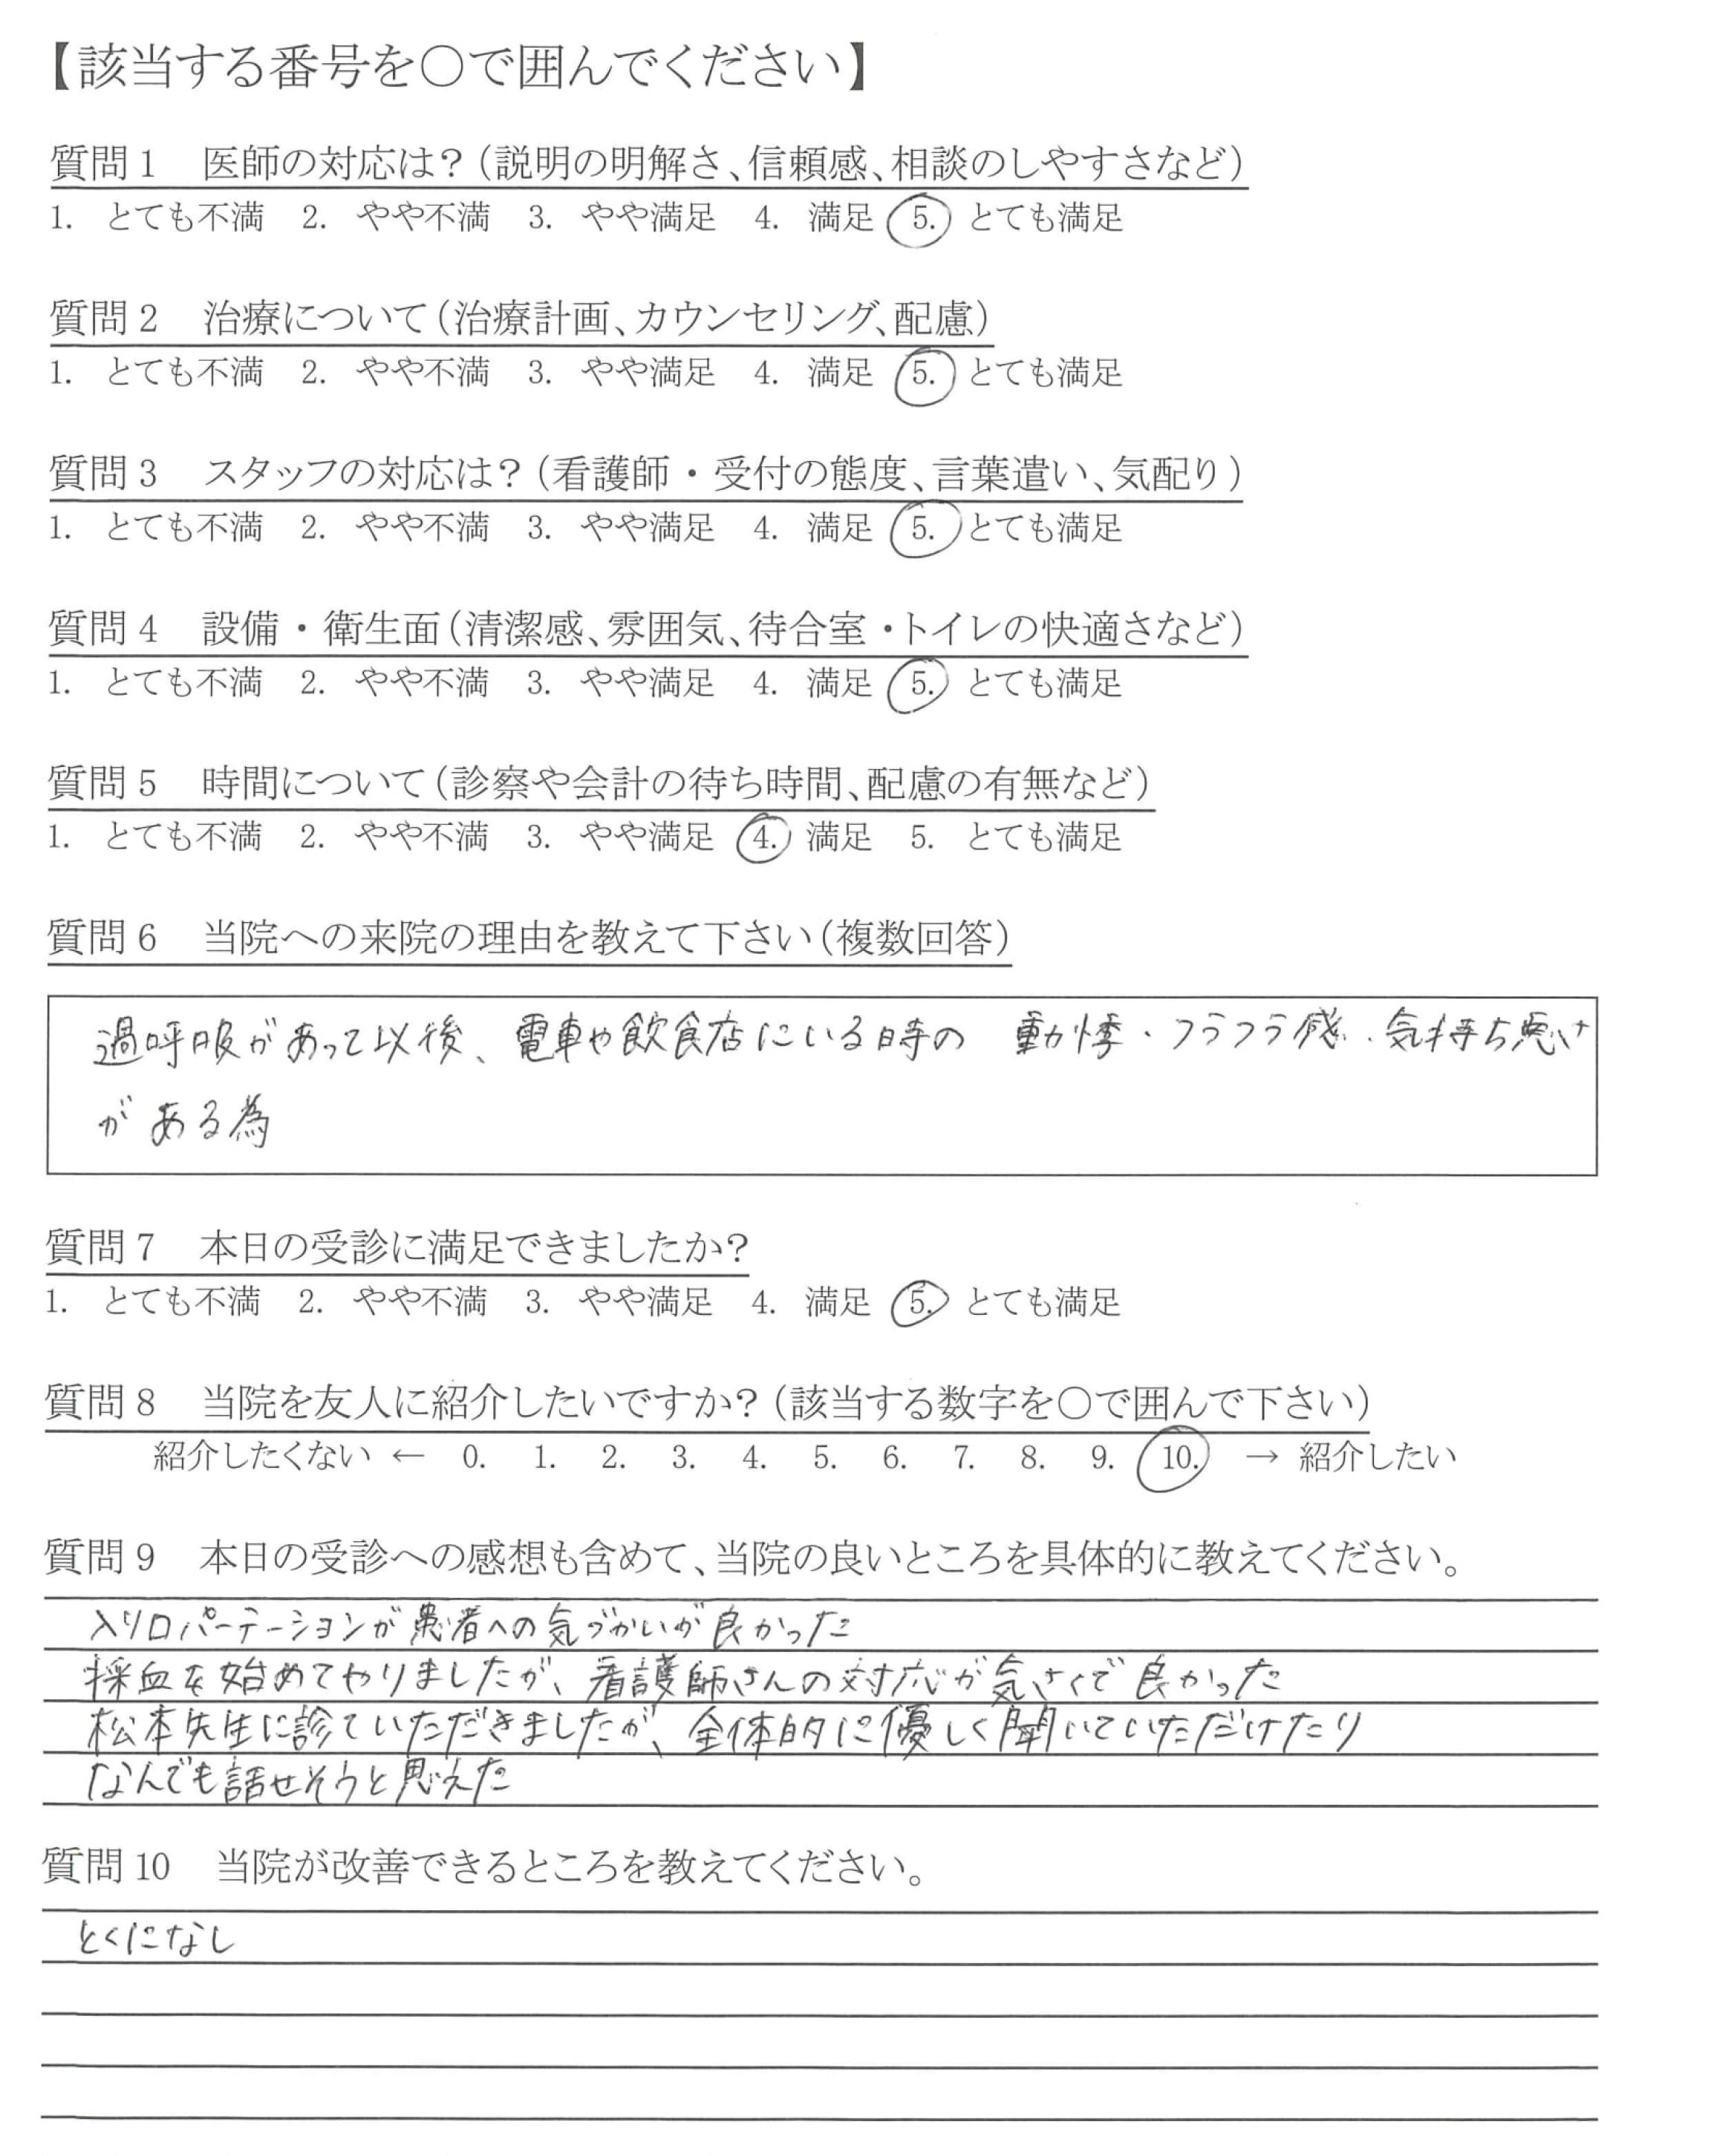 【該当する番号を〇で囲んでください】
質問1 医師の対応は？（説明の明解さ、信頼感、相談のしやすさなど）
1. とても不満 2. やや不満 3. やや満足 4. 満足 5. とても満足
質問2 治療について（治療計画、カウンセリング、配慮）
1. とても不満 2. やや不満 3. やや満足 4. 満足 5. とても満足
質問3 スタッフの対応は？（看護師・受付の態度、言葉遣い、気配り）
1. とても不満 2. やや不満 3. やや満足 4. 満足 5. とても満足
質問4 設備・衛生面（清潔感、雰囲気、待合室・トイレの快適さなど）
1. とても不満 2. やや不満 3. やや満足 4. 満足 5. とても満足
質問5 時間について（診察や会計の待ち時間、配慮の有無など）
1. とても不満 2. やや不満 3. やや満足 4. 満足 5. とても満足
質問6 当院への来院の理由を教えて下さい（複数回答）
過呼吸があって以後、電車や飲食店にいる時の 動悸・フラフラ感・気持ち悪さ
がある為
質問7 本日の受診に満足できましたか？
1. とても不満 2. やや不満 3. やや満足 4. 満足 5. とても満足
質問8 当院を友人に紹介したいですか？（該当する数字を〇で囲んで下さい）
紹介したくない ← 0. 1. 2. 3. 4. 5. 6. 7. 8. 9. 10. → 紹介したい
質問9 本日の受診への感想も含めて、当院の良いところを具体的に教えてください。
入り口パーテーションが患者への気づかいが良かった
採血を始めてやりましたが、看護師さんの対応が気さくで良かった
松本先生に診ていただきましたが、全体的に優しく聞いていただけたり
なんでも話せそうと思えた
質問10 当院が改善できるところを教えてください。
とくになし